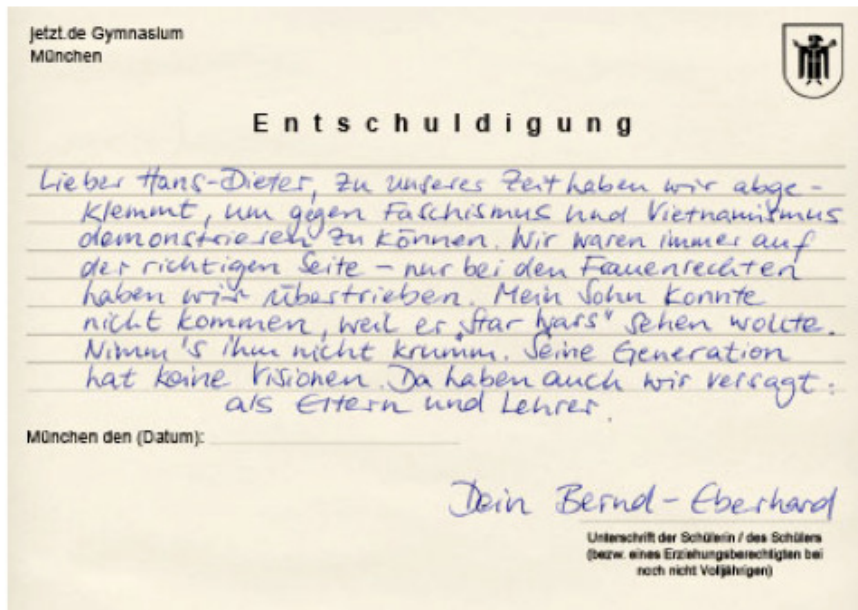 jetzt.de Gymnasium
München
Entschuldigung
Lieber Hans-Dieter, zu unserer Zeit haben wir abge-
klemmt, um gegen Faschismus und Vietnamismus
demonstrieren zu können. Wir waren immer auf
der richtigen Seite – nur bei den Frauenrechten
haben wir übertrieben. Mein Sohn konnte
nicht kommen, weil er „Star Wars" sehen wollte.
Nimm's ihm nicht krumm. Seine Generation
hat keine Visionen. Da haben auch wir versagt:
als Eltern und Lehrer.
München den (Datum):
Dein Bernd-Eberhard
Unterschrift der Schülerin / des Schülers
(bezw. eines Erziehungsberechtigten bei
noch nicht Volljährigen)